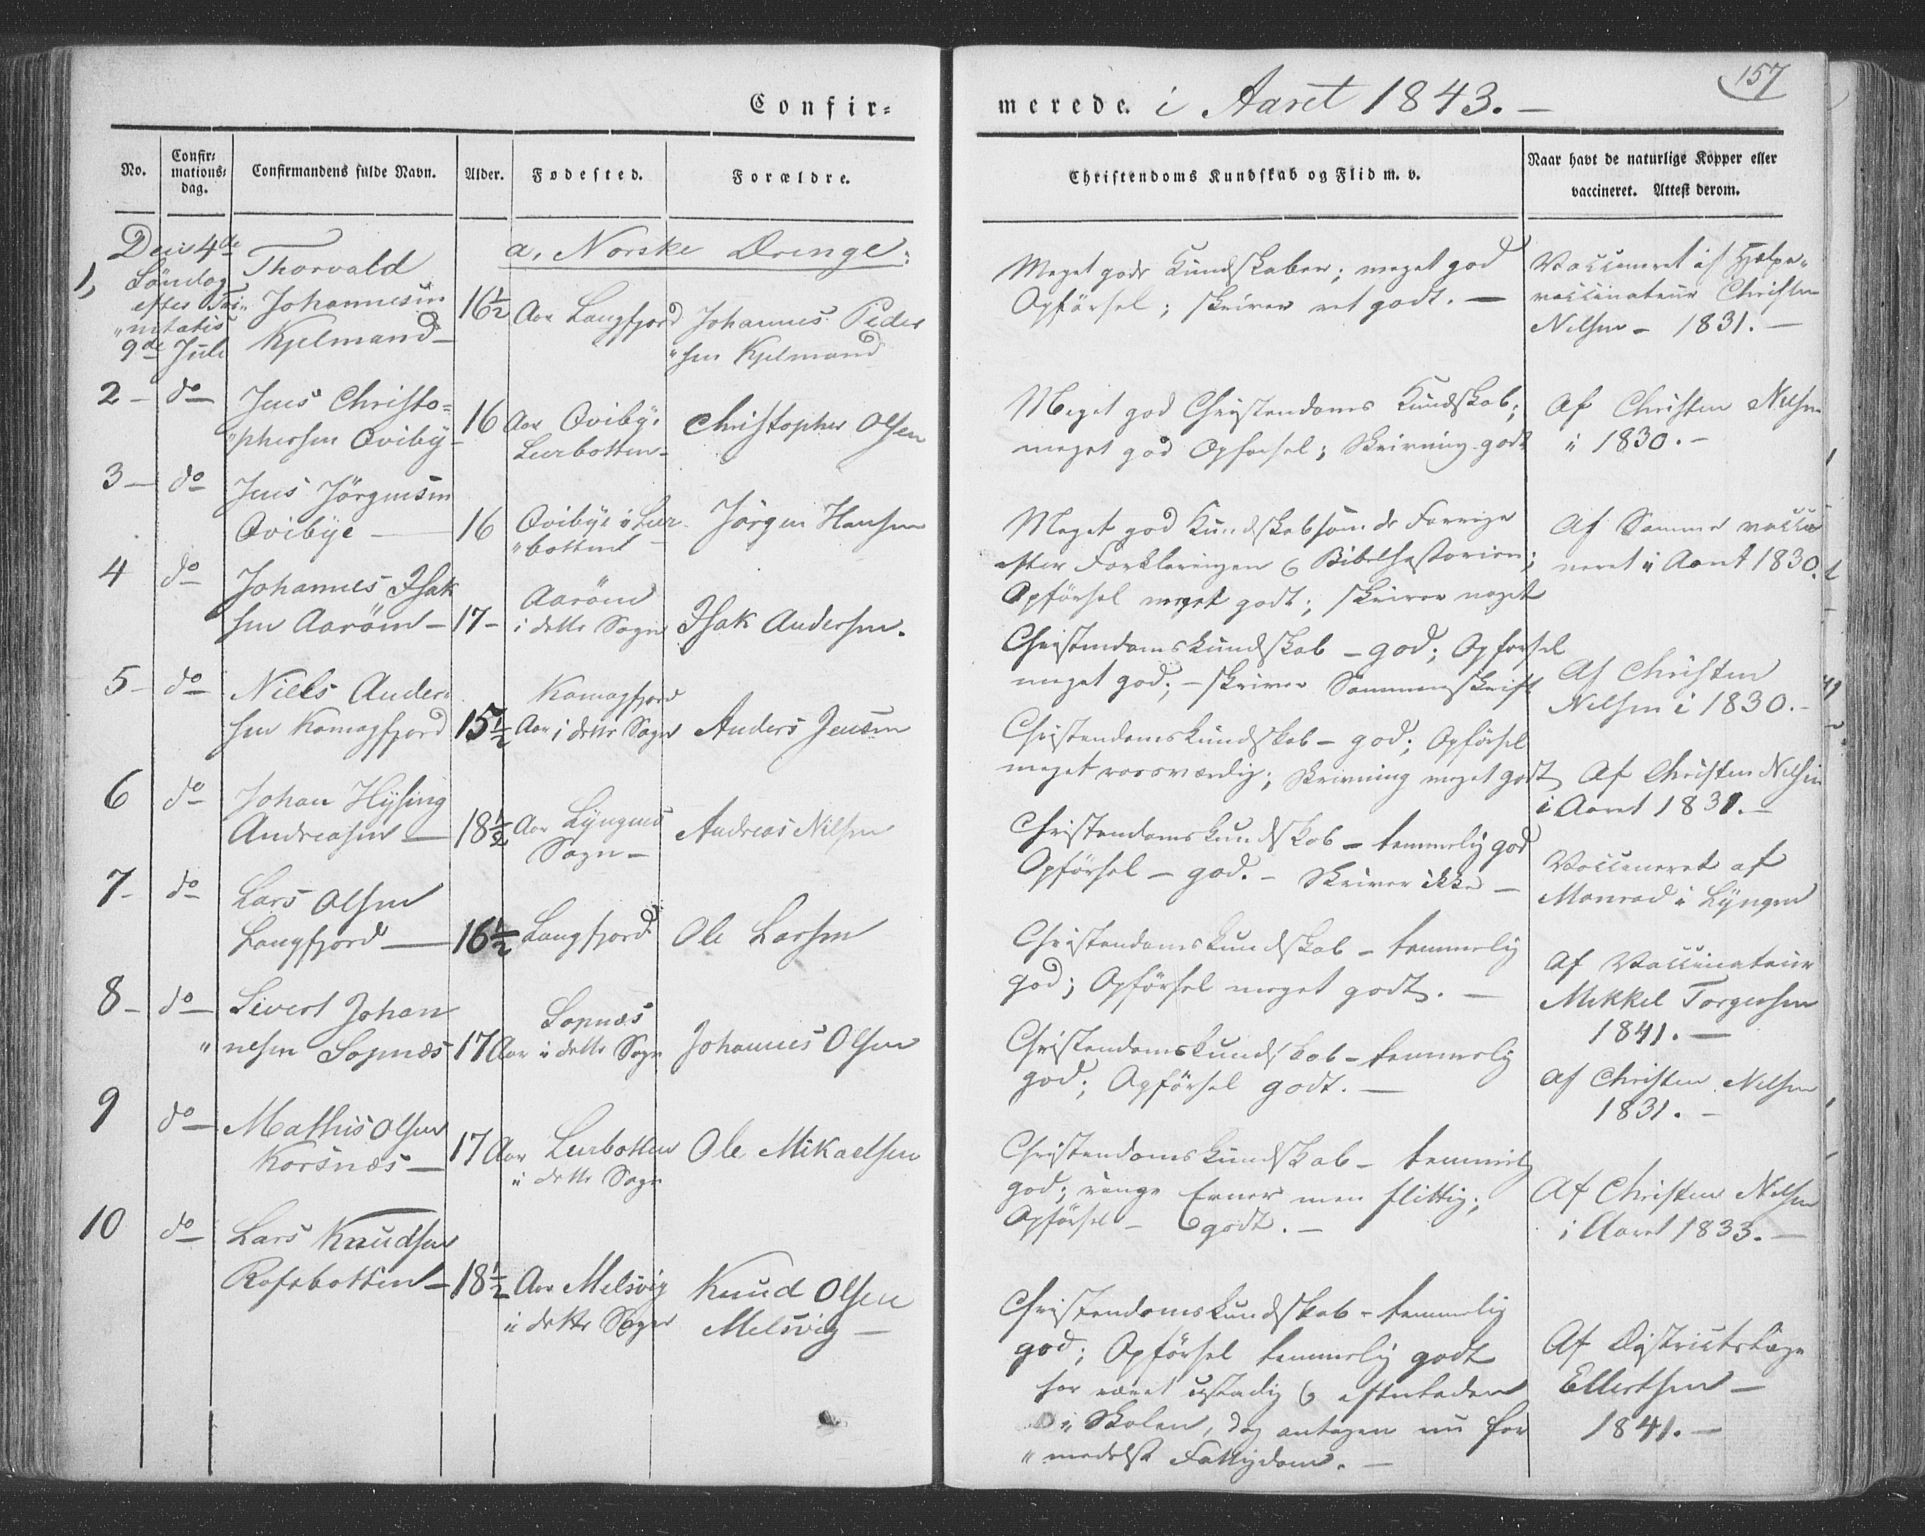 157
Confir=
merede. i Aaret 1843.—
No.
Confir=
mations=
dag.
Confirmandens fulde Navn.
Alder.
Fødested.
Forældre.
Christendoms Kundskab og Flid m. v.
Naar havt de naturlige Kopper eller
vaccineret. Attest derom.
a, Norske Drenge:
1,
Den 4de
Søndag
efter Tri-
"nitatis
9de Juli
Thorvald
Johannesen
Kjelmand—
16½ Aar Langfjord
Johannes Peder
"sen Kjelmand
Meget gode Kundskaber; meget god
Opførsel; skriver ret godt.—
Vaccineret af Hjelpe-
vaccinateur Christen
Nilsen – 1831.—
2 – do
Jens Christo=
"phersen Qviby–
16 Aar Qvibye
Lurbotten–
Christopher Olsen
Meget god Christendoms Kundskab;
meget god Opførsel; Skrivning godt
Af Christen Nilsen
i 1830.–
3 — do
Jens Jørgensen
Qvibye —
16 Qvibye i Lur
"botten
Jørgen Hansen
Meget god Kundskab
efter Forklaringen & Bibelhistorien;
Opførsel meget godt; skriver noget
Af Samme vacci
neret i Aaret 1830.
4 do
Johannes Isak
sen Aarøen – 17–
Aarøen
i dette Sogn
Isak Andersen.
Christendomskundskab – god; Opførsel
meget god; – skriver Sammenskrift
Af Christen
Nilsen i 1830.–
5 – do
Niels Ander
sen Komagfjord
15½
Komagfjord
Aar i dette Sogn
Anders Jensen
Christendomskundskab – god; Opførsel
meget roesværdig; Skrivning meget godt
Af Christen Nilsen
i Aaret 1831.–
6 do
Johan Hysing
Andreasen —
18½ Aar Lyngens
Sogn–
Andreas Nilsen
Christendomskundskab – temmelig god
Opførsel – god. – Skriver ikke –
Vaccineret af
Monrad i Lyngen
7– do
Lars Olsen
Langfjord —
16½ Langfjord
Ole Larsen
Christendomskundskab – temmelig
god; Opførsel meget godt. —
Af Vaccinateur
Mikkel Torgersen
1841.—
8 – do
Sivert Johan
" nesen Sopnæs
17 Aar
Sopnæs
i dette Sogn
Johannes Olsen
Christendomskundskab – temmelig
god; Opførsel godt. —
Af Christen Nilsen
1831.–
9 do
Mathis Olsen
Korsnæs —
17 Aar Lurbotten
i dette Sogn
Ole Mikaelsen
Christendomskundskab – temmelig
god; ringe Evner men flittig;
Opførsel – godt. –
Af Christen Nilsen
i Aaret 1833.—
10 do
Lars Knudsen
Rafsbotten –
18½ Aar Melsvig
i dette Sogn
Knud Olsen
Melsvig —
Christendomskundskab – temmelig
god; Opførsel temmelig godt
har været ustadig & efterladen
i Skolen, dog antagen nu for
" medelst Fattigdom. —
Af Districtslæge
Ellertsen —
1841.—